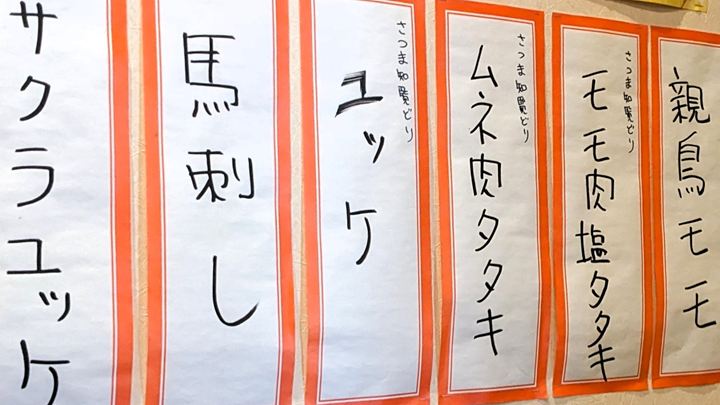 親鳥モモ
さつま知覧どり
モモ肉塩タタキ
さつま知覧どり
ムネ肉タタキ
さつま知覧どり
ユッケ
馬刺し
サクラユッケ